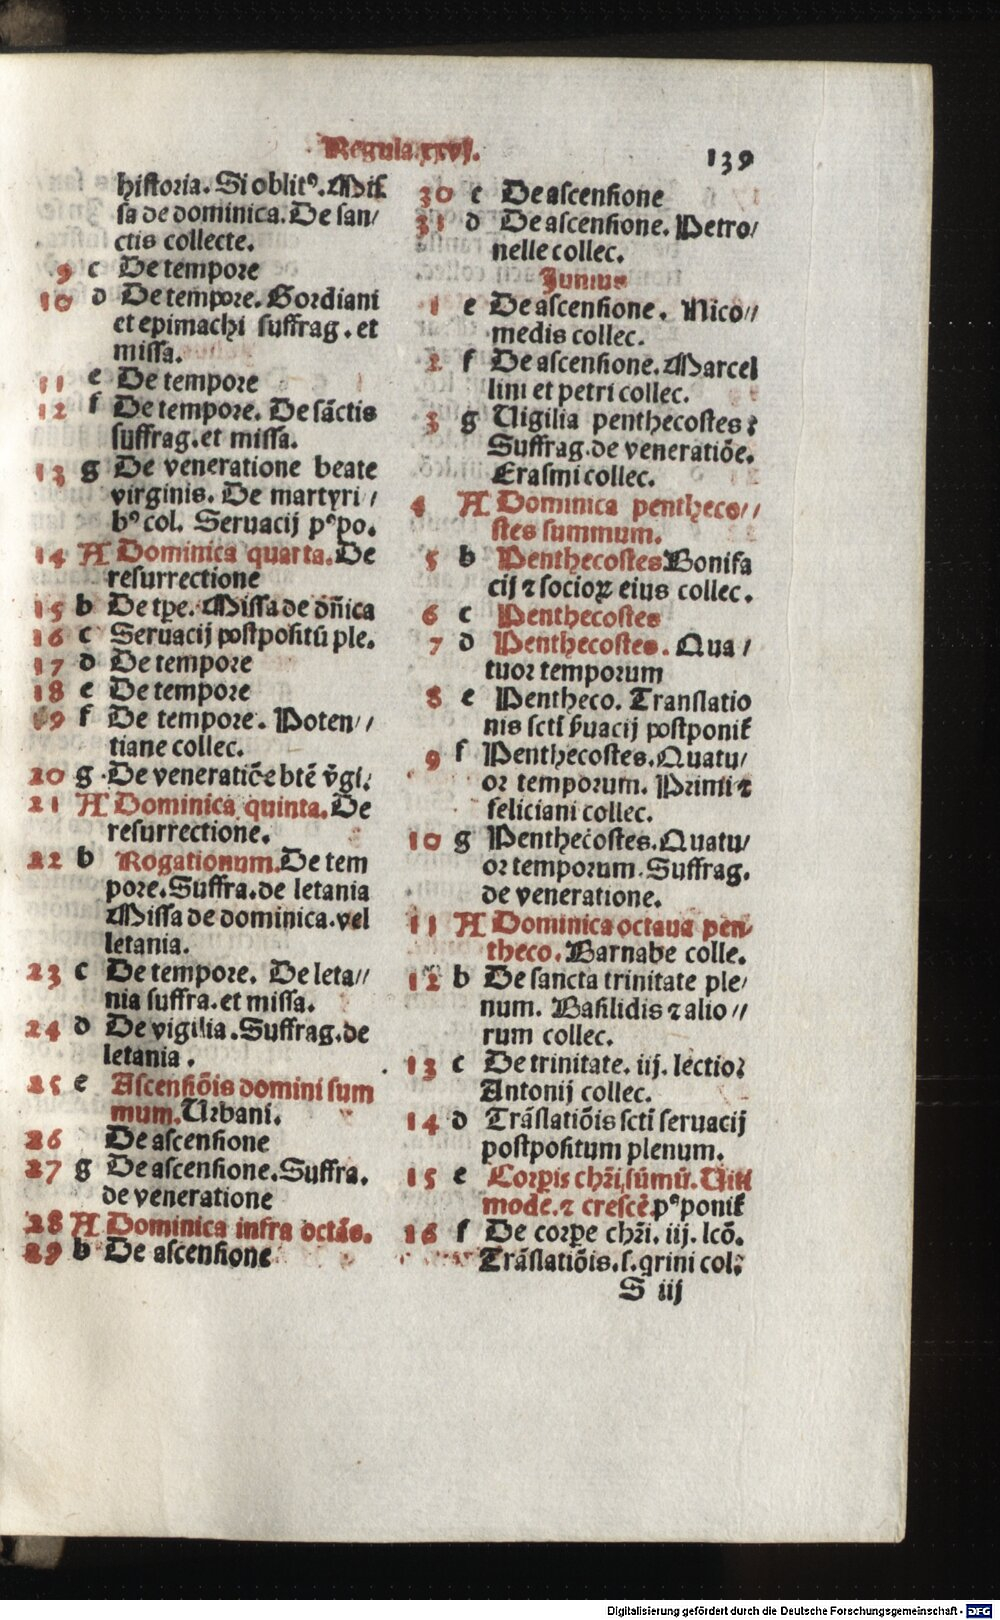 Regula.xxvj.
139
historia. Si oblitꝰ. Mis
sa de dominica. De san/
ctis collecte.
9 c De tempore
10 d De tempore. Gordiani
et epimachi suffrag. et
missa.
11 e De tempore
12 f De tempore. De sāctis
suffrag. et missa.
13 g De veneratione beate
virginis. De martyri/
bꝰ col. Seruacij pꝰpo.
14 A Dominica quarta. De
resurrectione
15 b De tpe. Missa de dñica
16 c Seruacij postpositū ple.
17 d De tempore
18 e De tempore
19 f De tempore. Poten//
tiane collec.
20 g De veneratiōe btē v̄gi.
21 A Dominica quinta. De
resurrectione.
22 b Rogationum. De tem
pore. Suffra. de letania
Missa de dominica. vel
letania.
23 c De tempore. De leta//
nia suffra. et missa.
24 d De vigilia. Suffrag. de
letania.
25 e Ascensiōis domini sum
mum. Urbani.
26 De ascensione
27 g De ascensione. Suffra.
de veneratione
28 A Dominica infra octās.
29 b De ascensione
30 c De ascensione
31 d De ascensione. Petro/
nelle collec.
Junius
1 e De ascensione. Nico//
medis collec.
2 f De ascensione. Marcel
lini et petri collec.
3 g Uigilia penthecostes:
Suffrag. de veneratiōe.
Erasmi collec.
4 A Dominica pentheco//
stes summum.
5 b Penthecostes Bonifa
cij ⁊ socioꝝ eius collec.
6 c Penthecostes
7 d Penthecostes. Qua/
tuor temporum
8 e Pentheco. Translatio
nis scti s̄uacij postponit̄
9 f Penthecostes. Quatu/
or temporum. Primi ⁊
feliciani collec.
10 g Penthecostes. Quatu/
or temporum. Suffrag.
de veneratione.
11 A Dominica octaua pen
theco. Barnabe colle.
12 b De sancta trinitate ple/
num. Basilidis ⁊ alio//
rum collec.
13 c De trinitate. iij. lectio?
Antonij collec.
14 d Trāslatiōis scti seruacij
postpositum plenum.
15 e Corpis chr̄i, sūmū. Uiti
mode. ⁊ crescē. pꝰponit̄
16 f De corpe chr̄i. iij. lcō.
Trāslatiōis. s. grini col.
S iij
Digitalisierung gefördert durch die Deutsche Forschungsgemeinschaft - DFG